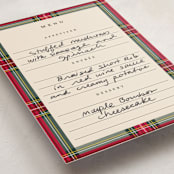 MENU
APPETIZER
Stuffed mushrooms
with sausage and
spinach
ENTRÉE
Braised short Rib
in red wine sauce
and creamy potatoes
DESSERT
Maple Bourbon
Cheesecake